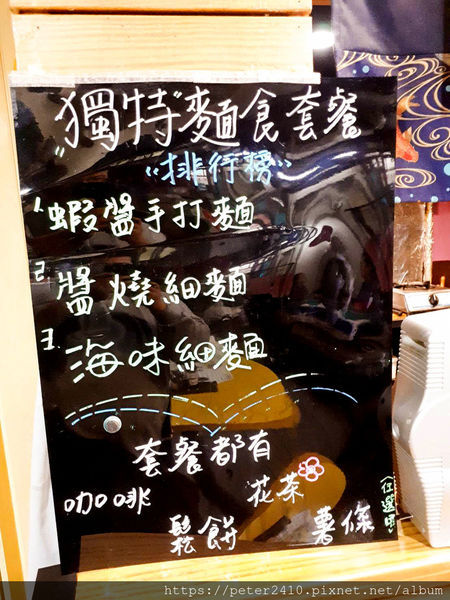 〝獨特〞麵食套餐
《排行榜》
1. 蝦醬手打麵
2. 醬燒細麵
3. 海味細麵
套餐都有
咖啡 花茶
鬆餅 薯條
https://peter2410.pixnet.net/album